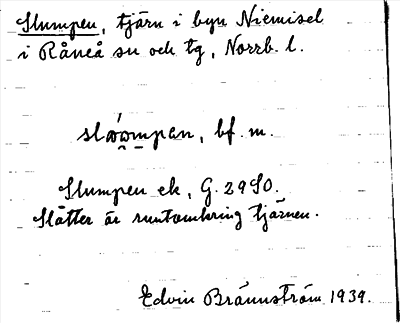 Slumpen, tjärn i byn Niemisel
i Råneå sn och tg, Norrb. l.
bf. m.
Slumpen ek, G. 2950.
Slåtter är runtomkring tjärnen.
Edvin Brännström 1939.